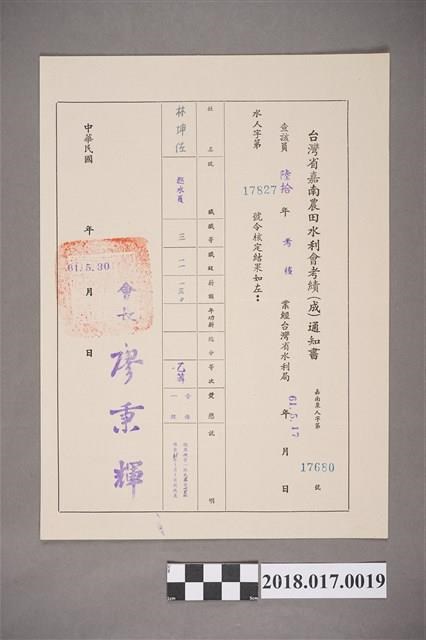 台灣省嘉南農田水利會考績(成)通知書
嘉南業人字第 17680 號
查該員 陸拾 年 考績 業經台灣省水利局 61.5.17 年 月 日
水人字第 17827 號令核定結果如左：
姓名 職 職等 職級 薪額 年功薪 總分 等次 獎懲 說明
林坤伍 巡水員 三 一一 一三〇 乙等
中華民國 年 月 日
61.5.30
會長 廖秉輝
2018.017.0019